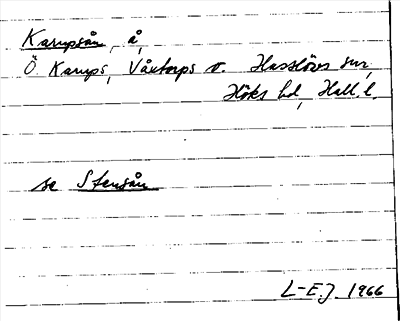 Karupsån, å,
Ö. Karups, Våxtorps o. Hasslövs snr,
Höks hd, Hall. l.
se Stensån
L-E.J. 1966